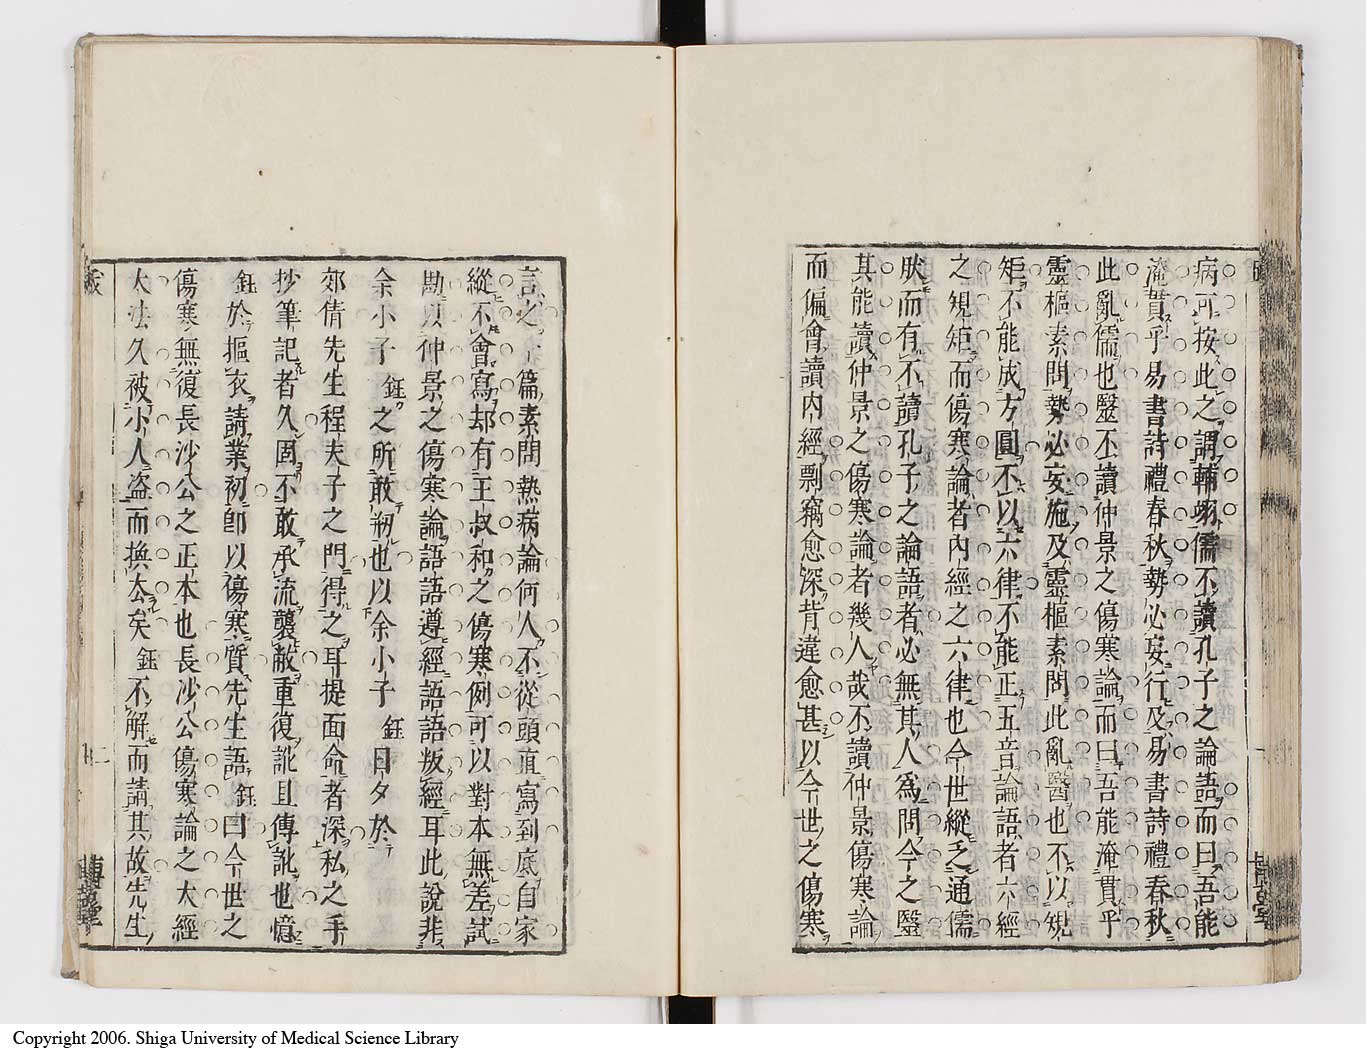 病可按此之謂輔嗚儒不讀孔子之論語而曰吾能
淹貫乎易書詩禮春秋勢必妄行及易書詩禮春秋
此亂儒也醫不讀仲景之傷寒論而曰吾能淹貫乎
靈樞素問勢必妄施及靈樞素問此亂醫也不以規
矩不能成方圓不以六律不能正五音論語者六經
之規矩而傷寒論者內經之六律也今世縱乏通儒
然而有不讀孔子之論語者必無其人爲問今之醫
其能讀仲景之傷寒論者幾人哉不讀仲景傷寒論
而偏會讀內經剽竊愈深背違愈甚以今世之傷寒
言之一篇素問熱病論何人不從頭直寫到底自家
縱不會寫却有王叔和之傷寒例可以對本無差試
勘以仲景之傷寒論語語遵經語語叛經耳此說非
余小子鈺之所敢剏也以余小子鈺日夕於
郊倩先生程夫子之門得之耳提面命者深私之手
抄筆記者久固不敢承流襲敝重復訛且傳訛也憶
鈺於摳衣請業初卽以傷寒質先生語鈺曰今世之
傷寒無復長沙公之正本也長沙公傷寒論之大經
大法久被小人盜而換去矣鈺不解而請其故先生
跋
二
Copyright 2006. Shiga University of Medical Science Library